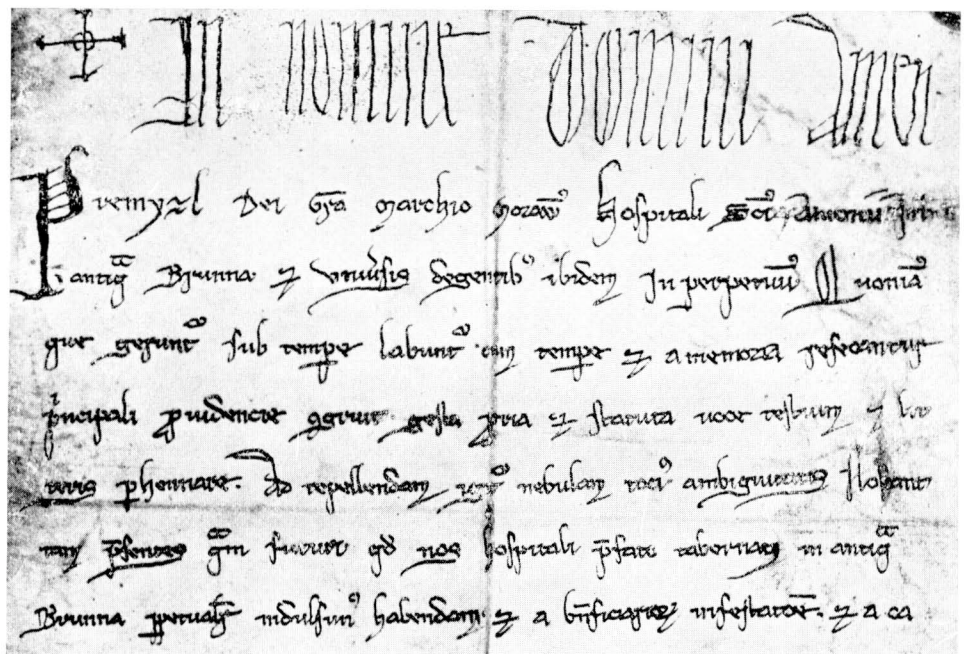 In nomine Domini Amen
Premyzl Dei Gra Marchio Hospitali
in antiqa Brunna et vniuersis degentib ibidem In perpetuum Quoniam
que gerunt sub tempe labunt cum tempe et a memoria resecantur
principali prudencie gruit gesta pria et statuta uoce testium et lit
teris phennare. Ad repellendam nebulam toci ambiguitatis Nosant
tam psentes qam futuri qd nos hospitali pfato tabernam in antiqa
Brunna indulsim habendam et a infestatoe. et a ca